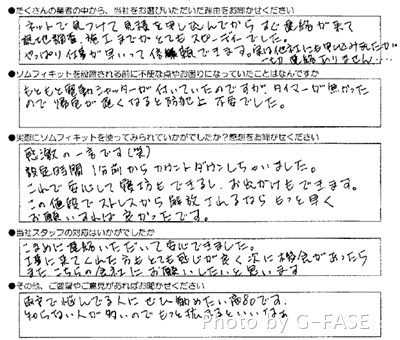 ●たくさんの業者の中から、当社をお選びいただいた理由をお聞かせください
ネットで見つけて見積を申し込んでからすぐ連絡が来て
現地調査、施工までがとてもスピーディーでした。
やっぱり仕事が早いって信頼できます。別の他社にも申し込みましたが
一切連絡ありません…
●ソムフィキットを設置される前に不便な点やお困りになっていたことはなんですか
もともと電動シャッターが付いていたのですがタイマーが無かった
ので帰宅が遅くなると防犯上不安でした。
●実際にソムフィキットを使ってみられていかがでしたか?感想をお聞かせください
感激の一言です(笑)
設定時間1分前からカウントダウンしちゃいました。
これで安心して寝坊もできるし、お出かけもできます。
この値段でストレスから解放されるならもっと早く
お願いすれば良かったです。
●当社スタッフの対応はいかがでしたか
こまめに連絡いただいて安心できました。
工事に来てくれた方もとても感じが良く次に機会があったら
またこちらの会社にお願いしたいと思います
●その他、ご要望やご意見があればお聞かせください
両方で悩んでる人にぜひ勧めたい商品です。
知らない人が多いのでもっと拡まるといいなぁ
Photo by G-FASE